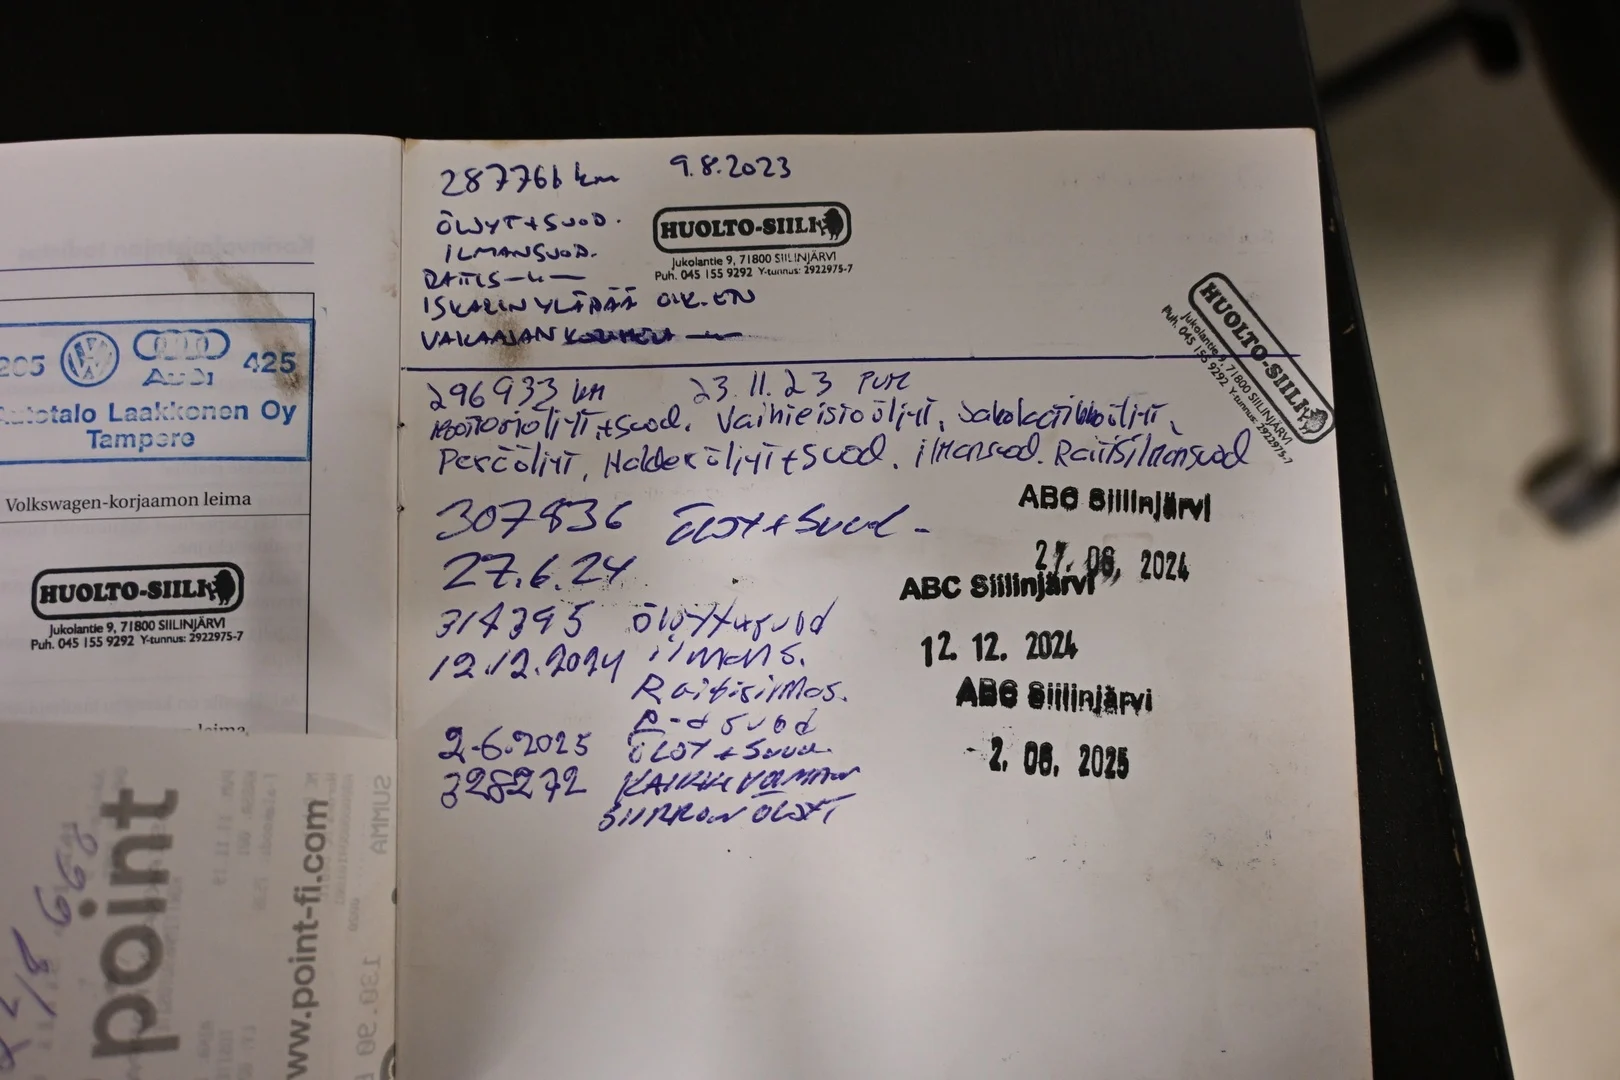 205 Audi 425
Autotalo Laakkonen Oy
Tampere
Volkswagen-korjaamon leima
HUOLTO-SIILI
Jukolantie 9, 71800 SIILINJÄRVI
Puh. 045 155 9292 Y-tunnus: 2922975-7
leima,
point
www.point-fi.com
SUMMA
130.90
668
287766 km 9.8.2023
ÖLJYT+SUOD.
ILMANSUOD.
RAITIS —"—
ISKARIN YLÄPÄÄ OIK. EN
VAKAAJAN
HUOLTO-SIILI
Jukolantie 9, 71800 SIILINJÄRVI
Puh. 045 155 9292 Y-tunnus: 2922975-7
HUOLTO-SIILI
Jukolantie 9, 71800 SIILINJÄRVI
Puh. 045 155 9292 Y-tunnus: 2922975-7
296933 km 23.11.23
moottoriöljyt+suod. Vaihteistoöljyt, Jakolaatikkoöljyt,
Peräöljyt, Halderöljyt+suod. ilmansuod. Raitisilmansuod
307836 Öljyt+suod-
27.6.24
ABC Siilinjärvi
27. 06, 2024
314395 Öljyt+suod
12.12.2024 ilmans.
Raitisilmas.
suod
ABC Siilinjärvi
12. 12. 2024
2.6.2025 Öljyt+suod.
328272 KAIKKI VOIMAN
SIIRRON ÖLJYT
ABC Siilinjärvi
- 2. 06. 2025